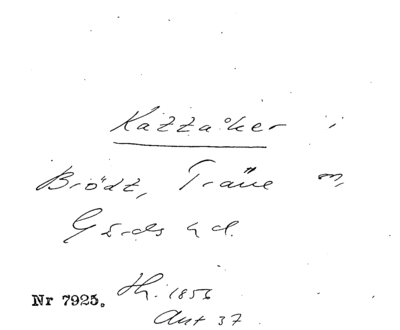 Kazzaker i
Brödt, Träne m,
Gärds hd.
Nr 7925. Th. 1856
Ant 37